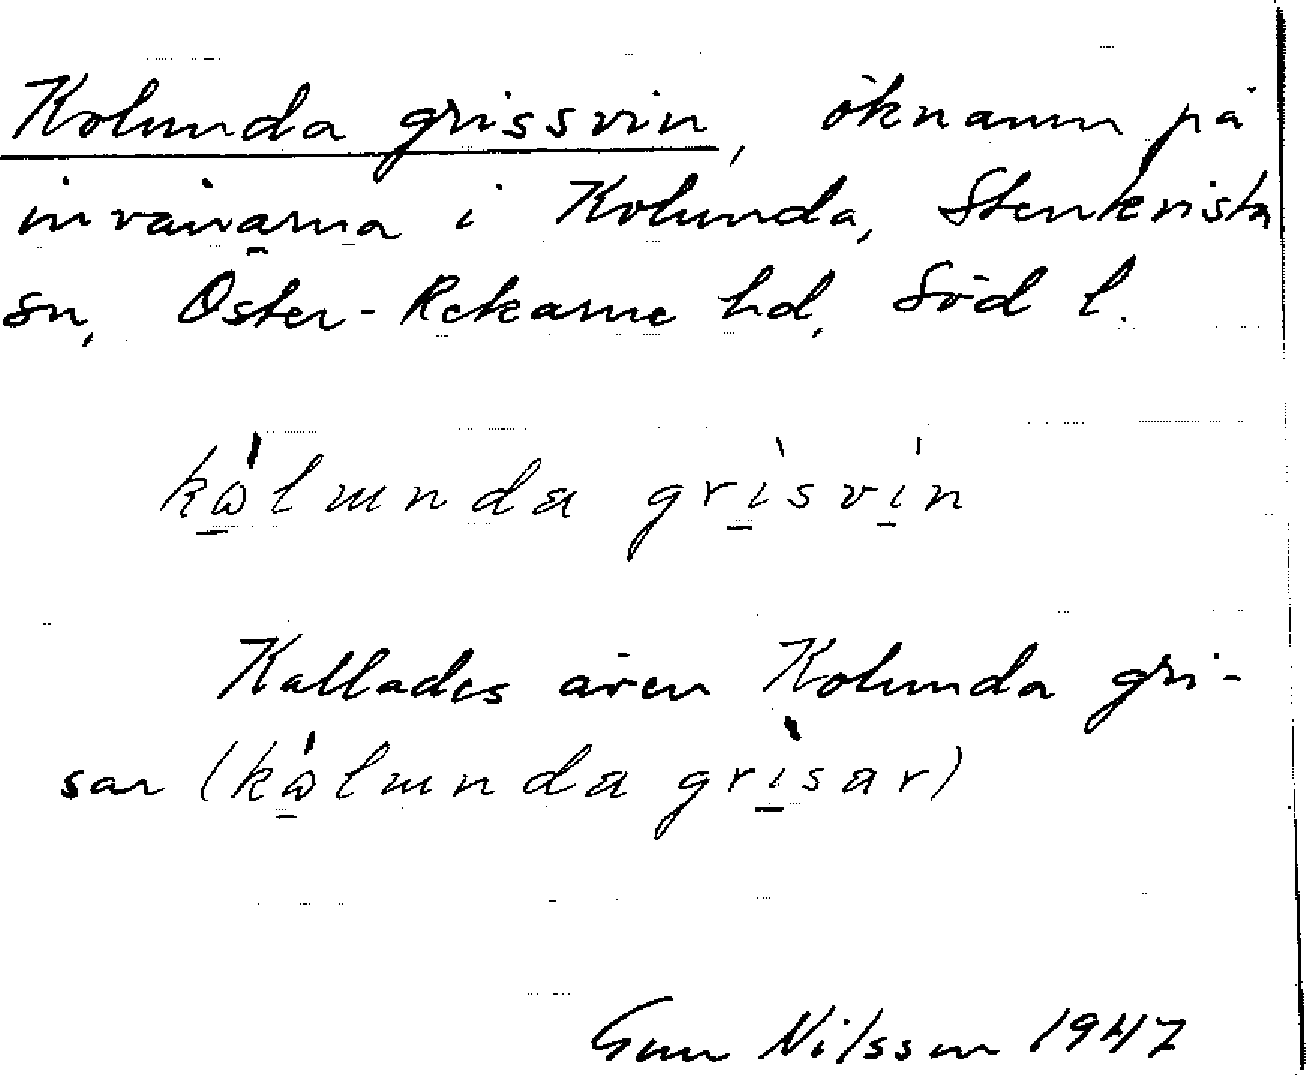 Kolunda grissvin, öknamn på
invånarna i Kolunda, Stenkvista
sn, Öster-Rekarne hd, Söd l.
kωlɯnda grisvin
Kallades även Kolunda gri-
sar (kωlɯnda grisar)
Gun Nilsson 1947